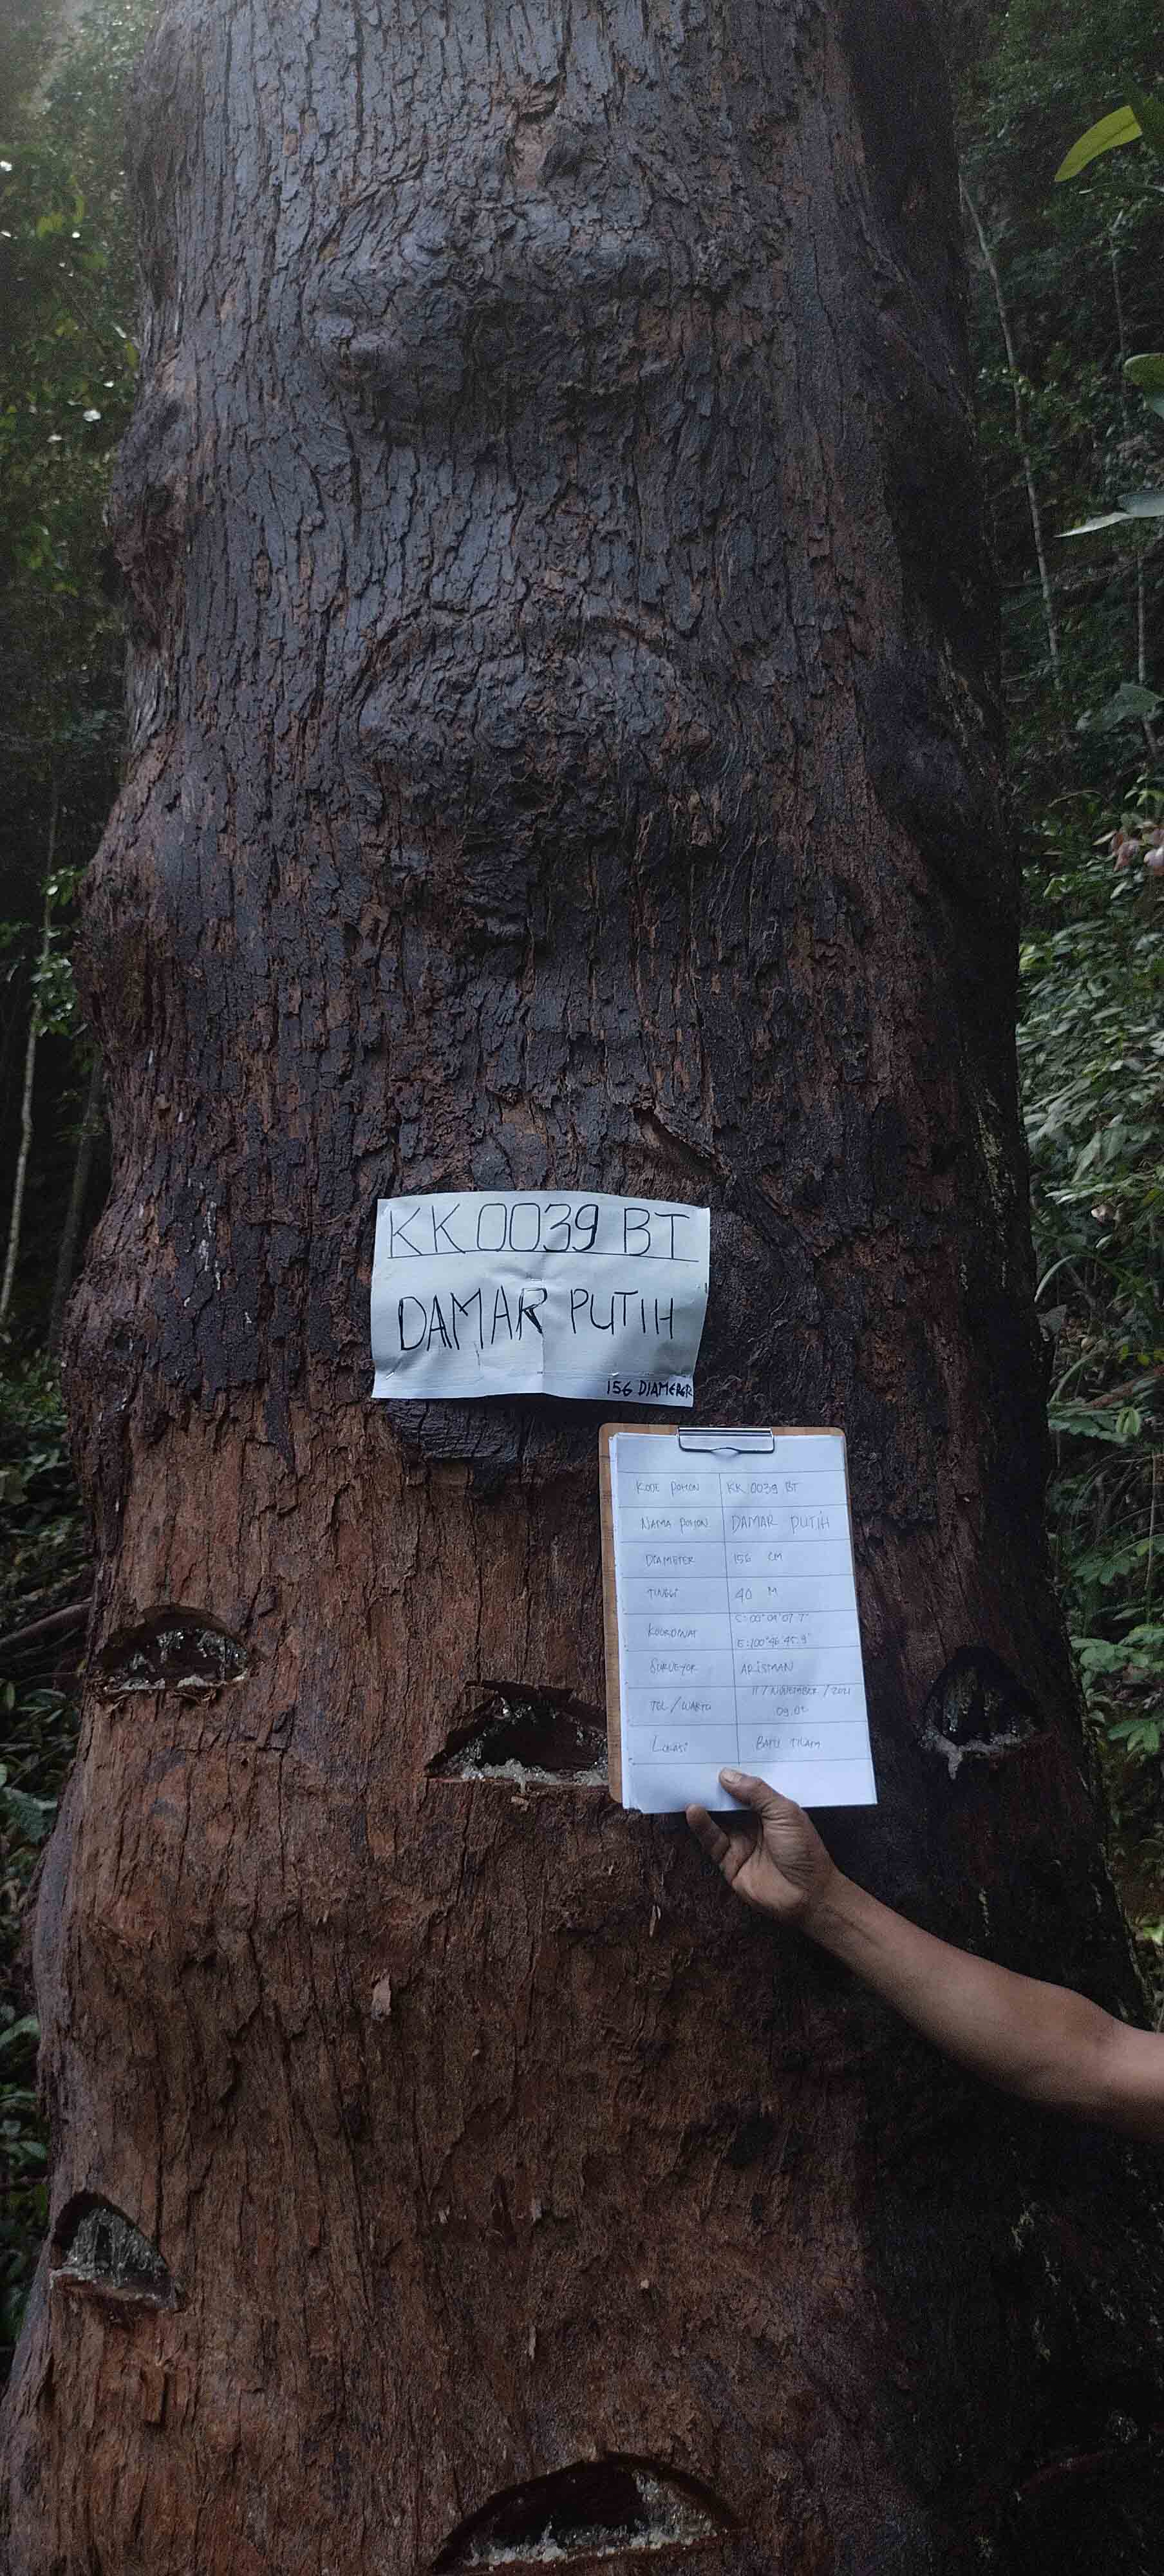 KK 0039 BT
DAMAR PUTIH
156 DIAMETER
KODE POHON KK 0039 BT
NAMA POHON DAMAR PUTIH
DIAMETER 156 CM
TINGGI 40 M
KOORDINAT S:00°04'07.7"
E:100°46'45.9"
SURVEYOR ARISMAN
TGL / WAKTU 11 / NOVEMBER / 2021
LOKASI BATU TILAM